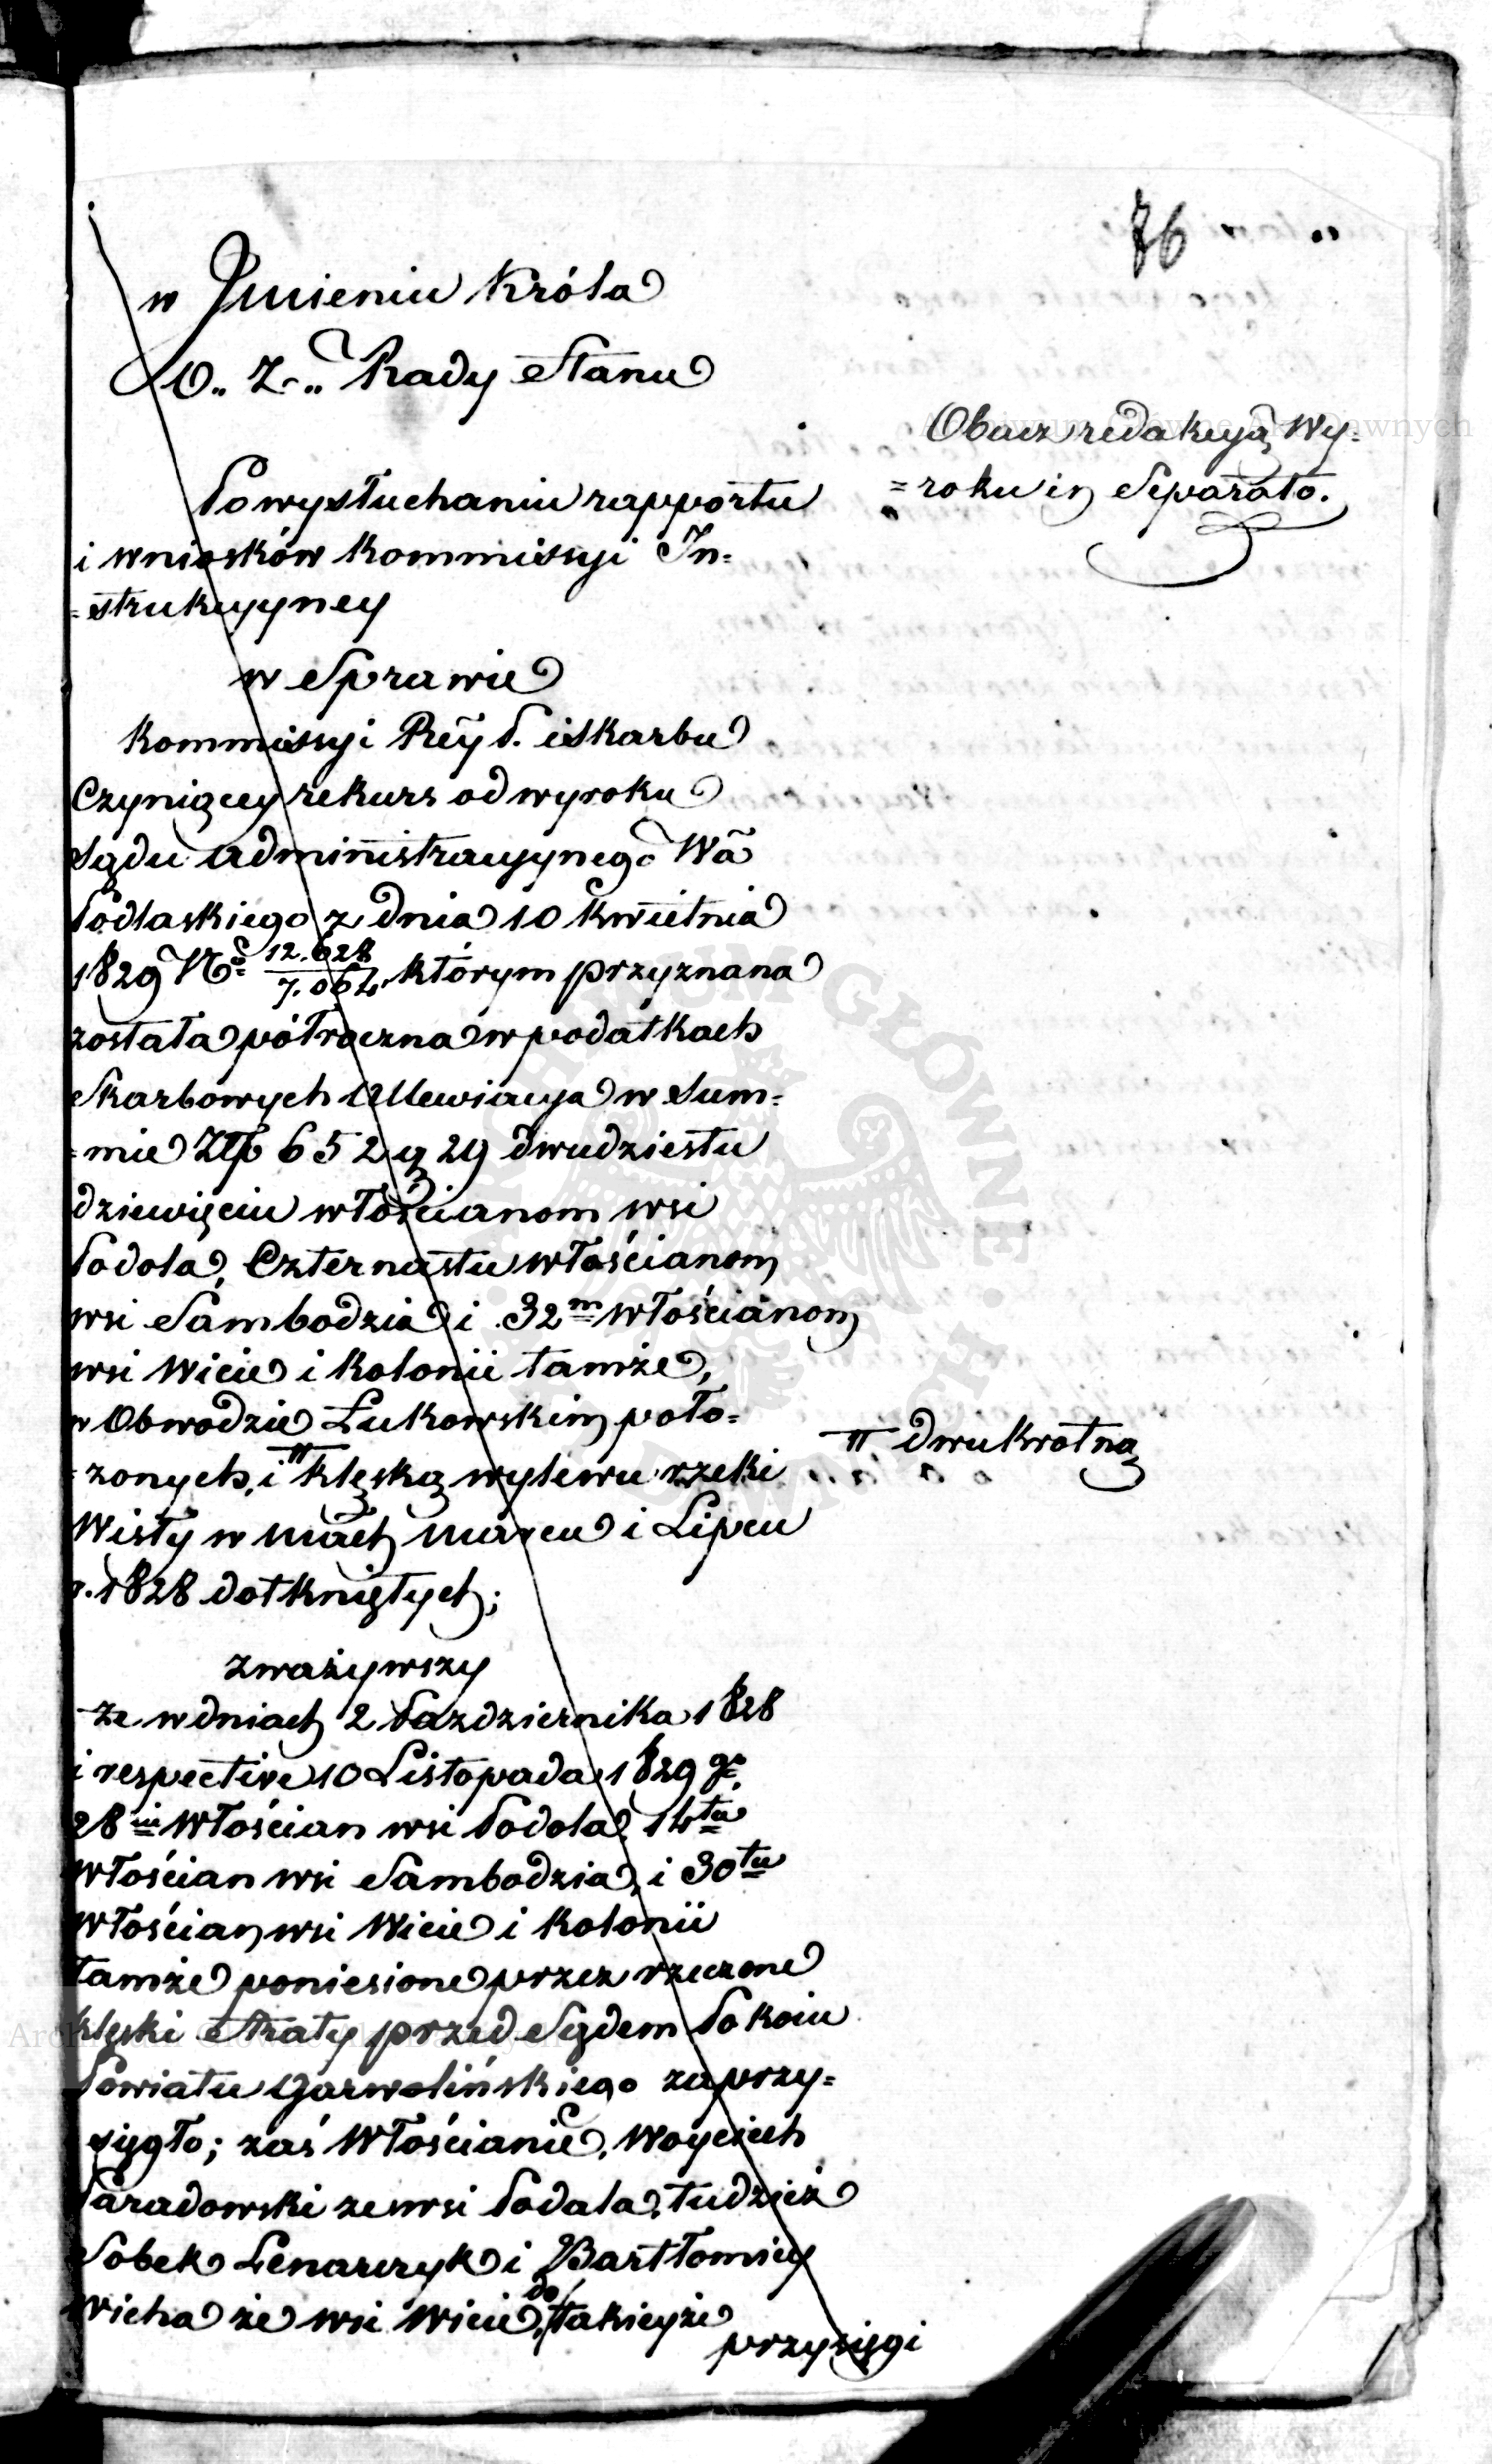 86
w Jmieniu Króla
O. Z. Rady Stanu
Obacz redakcyą Wy=
=roku in Separato.
Po wysłuchaniu rapportu
i wniosków Kommissyi In=
=strukcyyney
w Sprawie
Kommissyi Rey P. i Skarbu
Czyniącey rekurs od wyroku
Sądu Administracyynego Wa
Podlaskiego z dnia 10 Kwietnia
1829 No 12.628/7.064 którym przyznana
została półroczna w podatkach
Skarbowych Allewiacya w Sum=
=mie Złp 652 g 29 dwudziestu
dziewięciu włościanom wsi
Podola, Czternastu włościanom
wsi Sambodzia i 32m włościanom
wsi Wicie i Kolonii tamże,
w Obwodzie Łukowskim poło=
=żonych, i # klęską wylewu rzeki
# dwukrotną
Wisły w Mach Marcu i Lipcu
r. 1828 dotkniętych;
zważywszy
że w dniach 2 Pazdziernika 1828
i respective 10 Listopada 1829 go
28iu Włościan wsi Podola, 14tu
Włościan wsi Sambodzia, i 30tu
Włościan wsi Wicie i Kolonii
tamże poniesione przez rzeczone
klęski Straty przed Sądem Pokoiu
Powiatu Garwolińskiego zaprzy=
sięgło; zaś Włościanie, Woyciech
Paradowski ze wsi Podola, tudzież
Sobek Lenarczyk i Bartłomiey
Wicha ze wsi Wicie, do takieyże
przysięgi